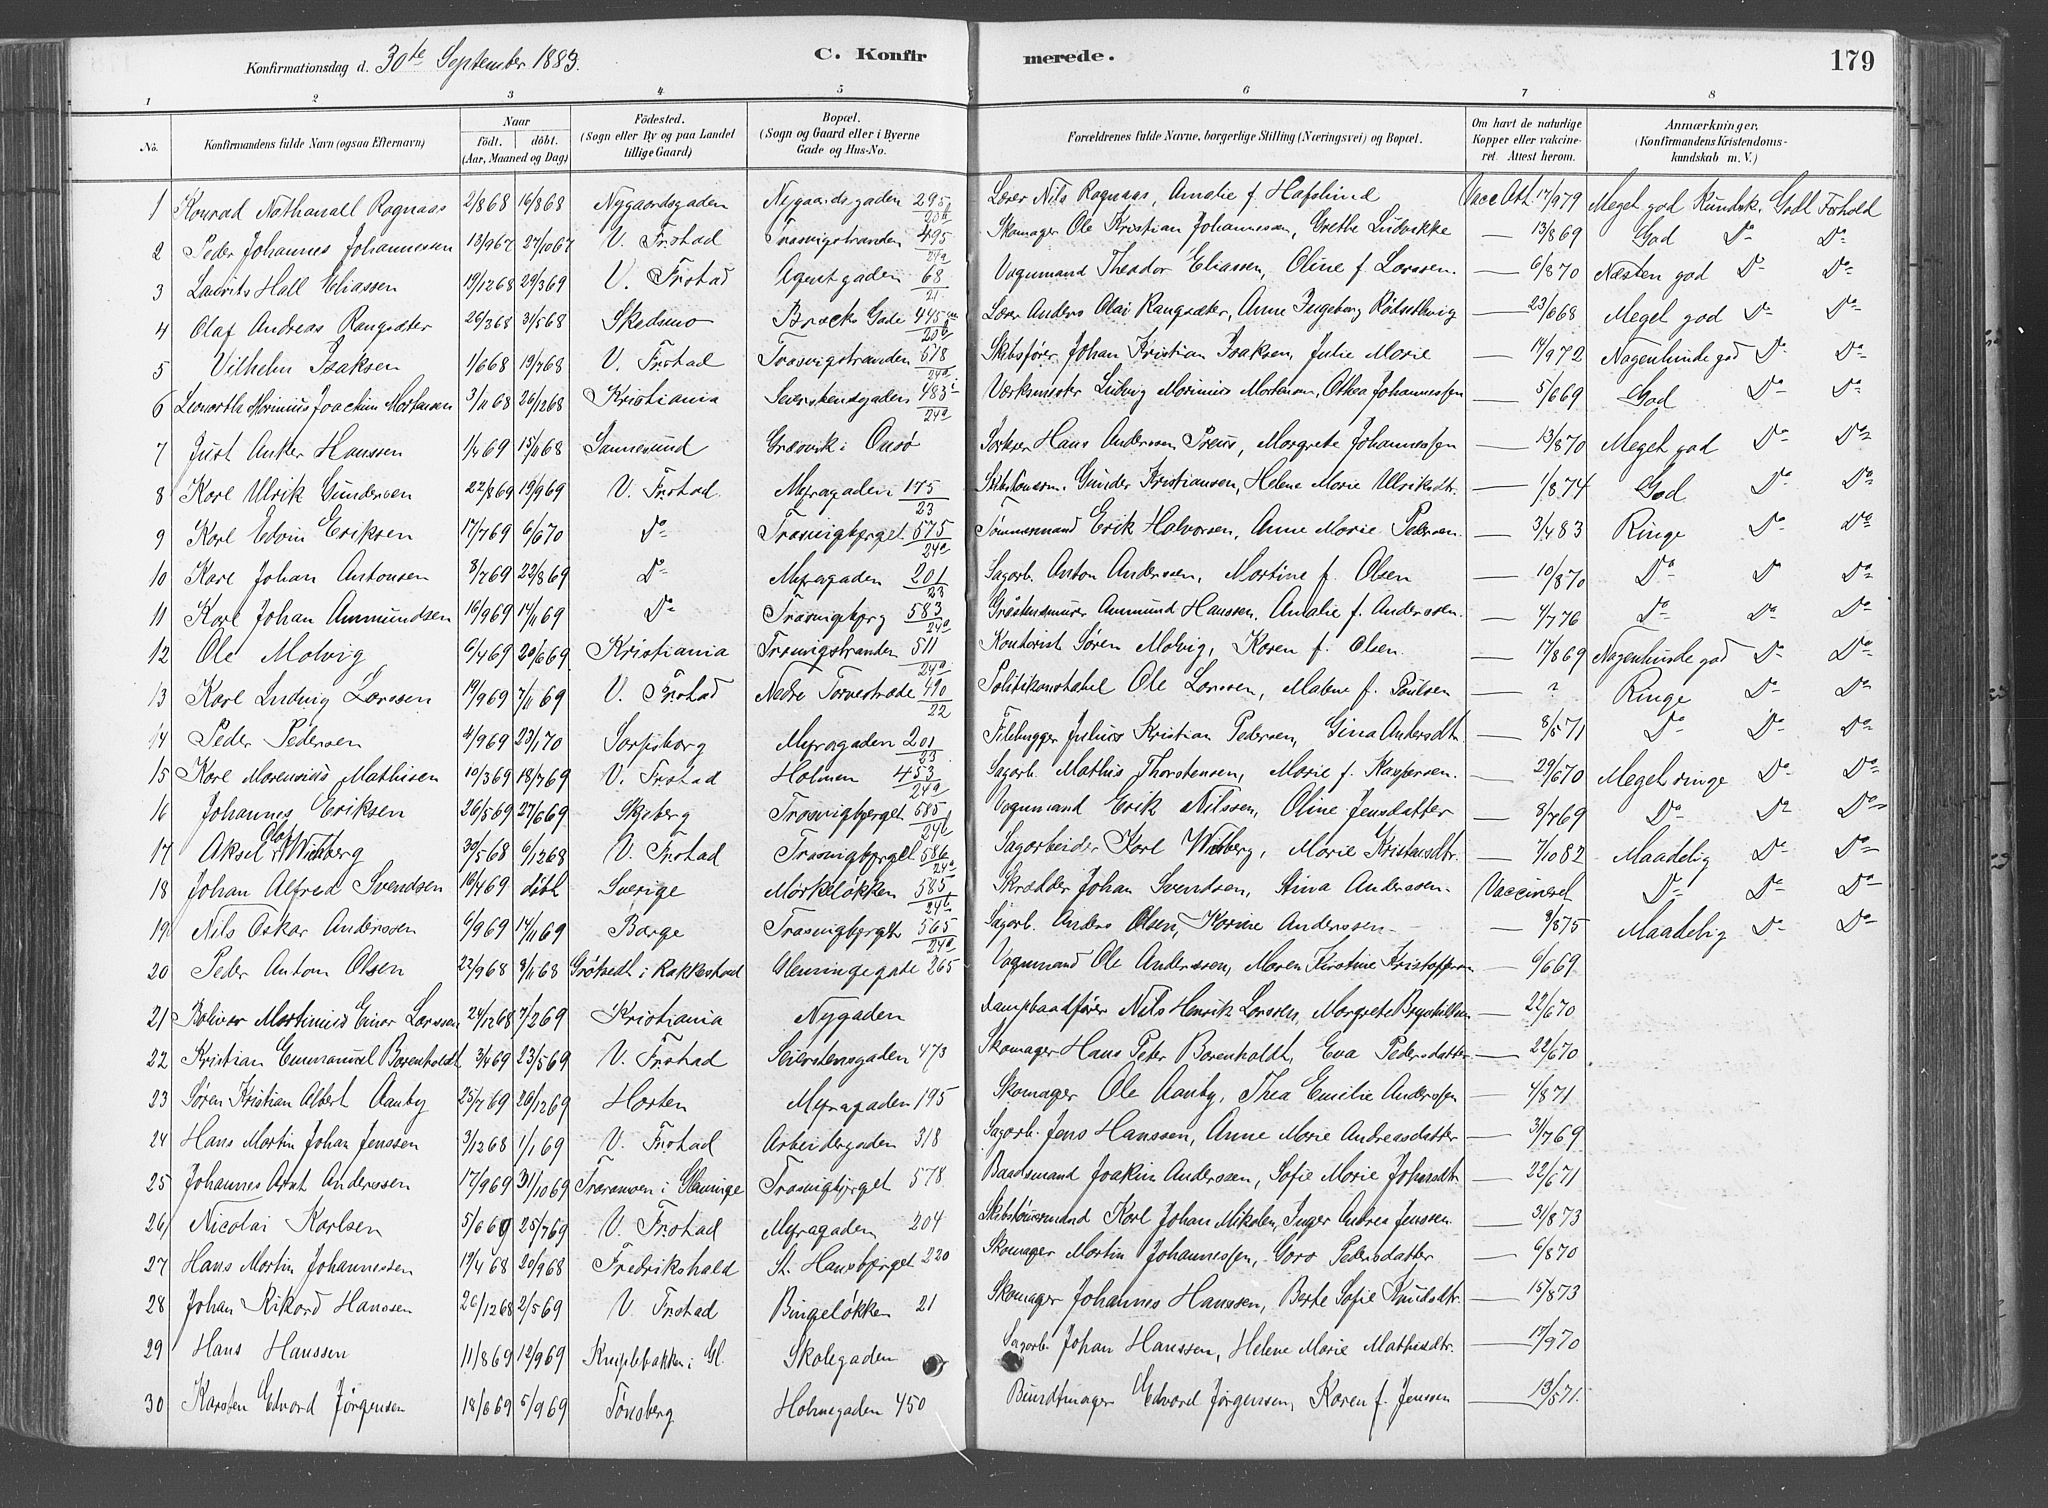 Konfirmationsdag d. 30te September 1883. C. Konfir merede. 179
1 2 3 4 5 6 7 8
No. Konfirmandens fulde Navn (ogsaa Efternavn) Naar födt. döbt. (Aar, Maaned og Dag) Födested. (Sogn eller By og paa Landet tillige Gaard) Bopæl. (Sogn og Gaard eller i Byerne Gade og Hus-No. Forældrenes fulde Navne, borgerlige Stilling (Næringsvei) og Bopæl. Om havt de naturlige Kopper eller vaccineret. Attest herom. Anmærkninger. (Konfirmandens Kristendomskundskab m. V.)
1 Konrad Nathanall Rognaas 2/8 68 16/8 68 Nygaardsgaden Nygaardsgaden 295/23b Lærer Nils Rognaas, Amalie f. Hafslund Vacc Att. 17/9 79 Meget god Kundsk. Godt Forhold
2 Peder Johannes Johannesen 13/9 67 27/10 67 V. Frstad Trosvigstranden 495/24a Skomager Ole Kristian Johannesen, Grethe Ludvikke — 13/8 69 God Do Do
3 Laurits Hall Eliassen 19/12 68 29/3 69 V. Frstad Agentgaden 68/21 Vognmand Theodor Eliassen, Oline f. Larssen. — 6/8 70 Næsten god Do Do
4 Olaf Andreas Rangsæter 26/3 68 31/5 68 Skedsmo Brochs Gade 445/23b Lærer Anders Olai Rangsæter, Anne Ingeborg Rødsethvig — 23/6 68 Meget god Do Do
5 Vilhelm Isaksen 1/6 68 19/7 68 V. Frstad Trosvigstranden 518/24a Skibsfører Johan Kristian Isaksen, Julie Marie — 14/9 72 Nagenlunde god Do Do
6 Leonorth Marinius Joachim Mortensen 3/11 68 26/12 68 Kristiania Seierstensgaden 483/24a Værkmester Ludvig Marinius Mortensen, Othea Johannessen — 5/6 69 God Do Do
7 Just Anker Hanssen 1/4 69 15/11 68 Sannesund Græsvik i Onsø Hans Anderssen Preus, Margrete Johannessen — 13/8 70 Meget god Do Do
8 Karl Ulrik Gundersen 22/8 69 19/9 69 V. Frstad. Myragaden 175/23 Skibstømm. Gunder Kristiansen, Helene Marie Ulriksdtr. — 1/8 74 God Do Do
9 Karl Edvin Eriksen 17/7 69 6/6 70 Do Trosvigbjerget 575/24a Tømmermand Erik Halvorsen, Anne Marie Pedersen. — 3/4 83 Ringe Do Do
10 Karl Johan Antonsen 8/7 69 22/8 69 Do Myragaden 201/23 Sagarb. Anton Anderssen, Martine f. Olsen — 10/8 70 Do Do Do
11 Karl Johan Ammundsen 16/9 69 14/11 69 Do Trosvigbjerg 583/24a Graastensmurer Ammund Hanssen. Amalie f. Anderssen. — 4/7 76 Do Do Do
12 Ole Molvig 6/4 69 20/6 69 Kristiania Trosvigstranden 511/24a Kontorist Søren Molvig, Karen f. Olsen. — 17/8 69 Nagenlunde god Do Do
13 Karl Ludvig Larssen 19/9 69 7/11 69 V. Frstad Nedre Torvestræde 490/22 Politikonstabel Ole Larssen, Malene f. Poulsen — ? Ringe Do Do
14 Peder Pedersen 4/9 69 23/1 70 Sarpsborg Myragaden 201/23 Filehugger Julius Kristian Pedersen, Gina Andersdtr — 8/5 71 Do Do Do
15 Karl Marensius Mathisen 10/3 69 18/7 69 V. Frstad Holmen 453/24a Sagarb. Mathis Thorstensen, Marie f. Kaspersen. — 29/6 70 Meget ringe Do Do
16 Johannes Eriksen 26/5 69 27/6 69 Skjeberg Trosvigbjerget 585/24b Vognmand Erik Nilssen, Oline Jensdatter — 8/7 69 Do Do Do
17 Aksel Olaf Widberg 30/5 68 6/12 68 V. Frstad Trosvigbjerget 586/24a Sagarbeider Karl Widberg, Marie Kristansdtr. — 7/10 82 Maadelig Do Do
18 Johan Alfred Svendsen 19/4 69 döbt Sverige Mørkeløkken 585/24b Skrædder Johan Svendsen, Stina Anderssen. Vaccineret Do Do Do
19 Nils Oskar Anderssen 6/9 69 14/11 69 Borge Trosvigbjerget 565/24a Sagarb. Anders Olsen, Karine Anderssen. — 9/8 75 Maadelig Do Do
20 Peder Anton Olsen 22/9 68 8/11 68 i Rakkestad Glemmingegade 265 Vognmand Ole Anderssen, Maren Kirstine Kristoffersen — 6/6 69
21 Bolivar Martinius Einar Larssen 24/12 68 7/2 69 Kristiania Nygaden Dampbaadfører Nils Henrik Larssen, Margrete — 22/6 70
22 Kristian Emmanuel Borenholdt 3/4 69 23/5 69 V. Frstad Seierstensgaden 473 Skomager Hans Peter Borenholdt, Eva Pedersdatter — 22/6 70
23 Søren Kristian Albert Aanby 25/7 69 26/12 69 Horten Myragaden 195 Skomager Ole Aanby, Thea Emilie Anderssen — 4/8 71
24 Hans Martin Johan Jenssen 3/12 68 1/1 69 V. Frstad Arbeidergaden 318 Sagarb. Jens Hanssen, Anne Marie Andreasdatter — 31/7 69
25 Johannes Arnt Anderssen 17/9 69 31/10 69 Traranven i Glemminge Trosvigbjerget 578 Baadsmand Joakim Anderssen, Sofie Marie Johansdtr. — 22/6 71
26 Nicolai Karlsen 5/6 69 25/7 69 V. Frstad Myragaden 204 Skibstømmermand Karl Johan Mikalsen, Inger Andrea Jenssen. — 31/8 73
27 Hans Martin Johannessen 19/4 68 20/9 68 Fredrikshald St. Hansbjerget 220 Skomager Martin Johannessen, Goro Pedersdatter — 6/8 70
28 Johan Rikard Hanssen 26/12 68 2/5 69 V. Frstad Bingeløkken 21 Skomager Johannes Hanssen, Berte Sofie Knudsdtr. — 15/8 73
29 Hans Hanssen 11/8 69 12/9 69 Kniplebakken i Gl. Skolegaden Sagarb. Johan Hanssen, Helene Marie Mathisdtr. — 17/9 70
30 Karsten Edvard Jørgensen 18/6 69 5/9 69 Tønsberg Holmegaden 450 Bundtmager Edvard Jørgenssen, Karen f. Jenssen — 13/5 71.